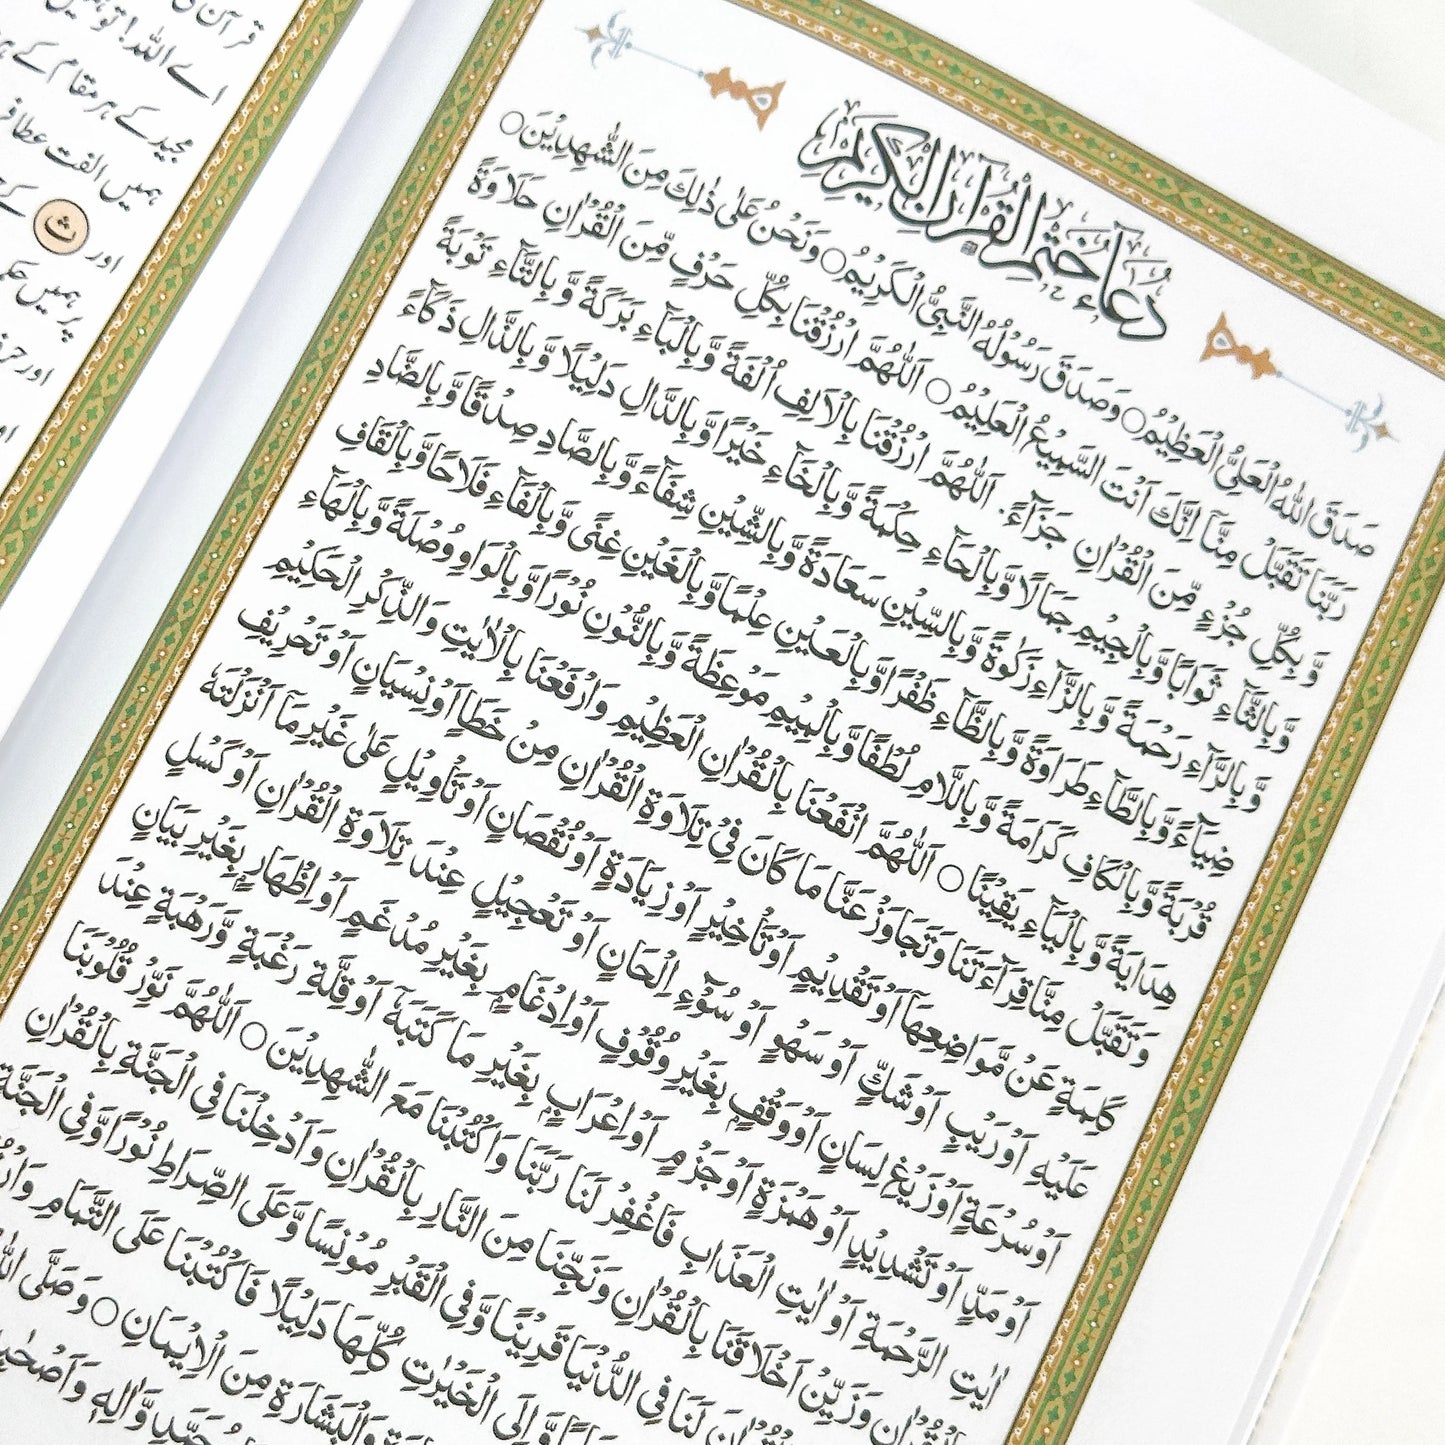 دُعَآءُ خَتْمِ الْقُرْآنِ الْكَرِيْمِ
صَدَقَ اللّٰهُ الْعَلِيُّ الْعَظِيْمُ○ وَصَدَقَ رَسُوْلُهُ النَّبِيُّ الْكَرِيْمُ○ وَنَحْنُ عَلٰى ذٰلِكَ مِنَ الشّٰهِدِيْنَ○
رَبَّنَا تَقَبَّلْ مِنَّآ اِنَّكَ اَنْتَ السَّمِيْعُ الْعَلِيْمُ○ اَللّٰهُمَّ ارْزُقْنَا بِكُلِّ حَرْفٍ مِّنَ الْقُرْاٰنِ حَلَاوَةً
وَّ بِكُلِّ جُزْءٍ مِّنَ الْقُرْاٰنِ جَزَآءً. اَللّٰهُمَّ ارْزُقْنَا بِالْاَلِفِ اُلْفَةً وَّبِالْبَآءِ بَرَكَةً وَّ بِالتَّآءِ تَوْبَةً
وَّبِالثَّآءِ ثَوَابًا وَّبِالْجِيْمِ جَمَالًا وَّبِالْحَآءِ حِكْمَةً وَّبِالْخَآءِ خَيْرًا وَّبِالدَّالِ دَلِيْلًا وَّبِالذَّالِ ذَكَآءً
وَّبِالرَّآءِ رَحْمَةً وَّبِالزَّآءِ زَكٰوةً وَّبِالسِّيْنِ سَعَادَةً وَّبِالشِّيْنِ شِفَآءً وَّبِالصَّادِ صِدْقًا وَّبِالضَّادِ
ضِيَآءً وَّبِالطَّآءِ طَرَاوَةً وَّبِالظَّآءِ ظَفْرًا وَّبِالْعَيْنِ عِلْمًا وَّبِالْغَيْنِ غِنًى وَّبِالْفَآءِ فَلَاحًا وَّبِالْقَافِ
قُرْبَةً وَّبِالْكَافِ كَرَامَةً وَّبِاللَّامِ لُطْفًا وَّبِالْمِيْمِ مَوْعِظَةً وَّبِالنُّوْنِ نُوْرًا وَّبِالْوَاوِ وُصْلَةً وَّبِالْهَآءِ
هِدَايَةً وَّبِالْيَآءِ يَقِيْنًا○ اَللّٰهُمَّ انْفَعْنَا بِالْقُرْاٰنِ الْعَظِيْمِ وَارْفَعْنَا بِالْاٰيٰتِ وَالذِّكْرِ الْحَكِيْمِ
وَتَقَبَّلْ مِنَّا قِرَآءَتَنَا وَتَجَاوَزْ عَنَّا مَا كَانَ فِيْ تِلَاوَةِ الْقُرْاٰنِ مِنْ خَطَاٍ اَوْ نِسْيَانٍ اَوْ تَحْرِيْفِ
كَلِمَةٍ عَنْ مَّوَاضِعِهَا اَوْ تَقْدِيْمٍ اَوْ تَاْخِيْرٍ اَوْ زِيَادَةٍ اَوْ نُقْصَانٍ اَوْ تَاْوِيْلٍ عَلٰى غَيْرِ مَآ اَنْزَلْتَهٗ
عَلَيْهِ اَوْ رَيْبٍ اَوْ شَكٍّ اَوْ سَهْوٍ اَوْ سُوْٓءِ اِلْحَانٍ اَوْ تَعْجِيْلٍ عِنْدَ تِلَاوَةِ الْقُرْاٰنِ اَوْ كَسَلٍ
اَوْ سُرْعَةٍ اَوْ زَيْغِ لِسَانٍ اَوْ وَقْفٍ بِغَيْرِ وُقُوْفٍ اَوْ اِدْغَامٍ بِغَيْرِ مُدْغَمٍ اَوْ اِظْهَارٍ بِغَيْرِ بَيَانٍ
اَوْ مَدٍّ اَوْ تَشْدِيْدٍ اَوْ هَمْزَةٍ اَوْ جَزْمٍ اَوْ اِعْرَابٍ بِغَيْرِ مَا كَتَبَهٗٓ اَوْ قِلَّةِ رَغْبَةٍ وَّرَهْبَةٍ عِنْدَ
اٰيٰتِ الرَّحْمَةِ اَوْ اٰيٰتِ الْعَذَابِ فَاغْفِرْ لَنَا رَبَّنَا وَاكْتُبْنَا مَعَ الشّٰهِدِيْنَ○ اَللّٰهُمَّ نَوِّرْ قُلُوْبَنَا
وَزَيِّنْ اَخْلَاقَنَا بِالْقُرْاٰنِ وَنَجِّنَا مِنَ النَّارِ بِالْقُرْاٰنِ وَاَدْخِلْنَا فِي الْجَنَّةِ بِالْقُرْاٰنِ
لَنَا فِي الدُّنْيَا قَرِيْنًا وَّفِي الْقَبْرِ مُوْنِسًا وَّعَلَى الصِّرَاطِ نُوْرًا وَّفِي الْجَنَّةِ
وَّاِلَى الْخَيْرٰتِ كُلِّهَا دَلِيْلًا فَاكْتُبْنَا عَلَى التَّمَامِ
وَالْبَشَارَةِ مِنَ الْاِيْمَانِ○ وَصَلَّى
وَّاٰلِهٖ
اے اللہ! تو ہمیں
مجید کے ہر مقام کے
ہمیں الفت عطا
اور ث کے
پر ہمیں
اور